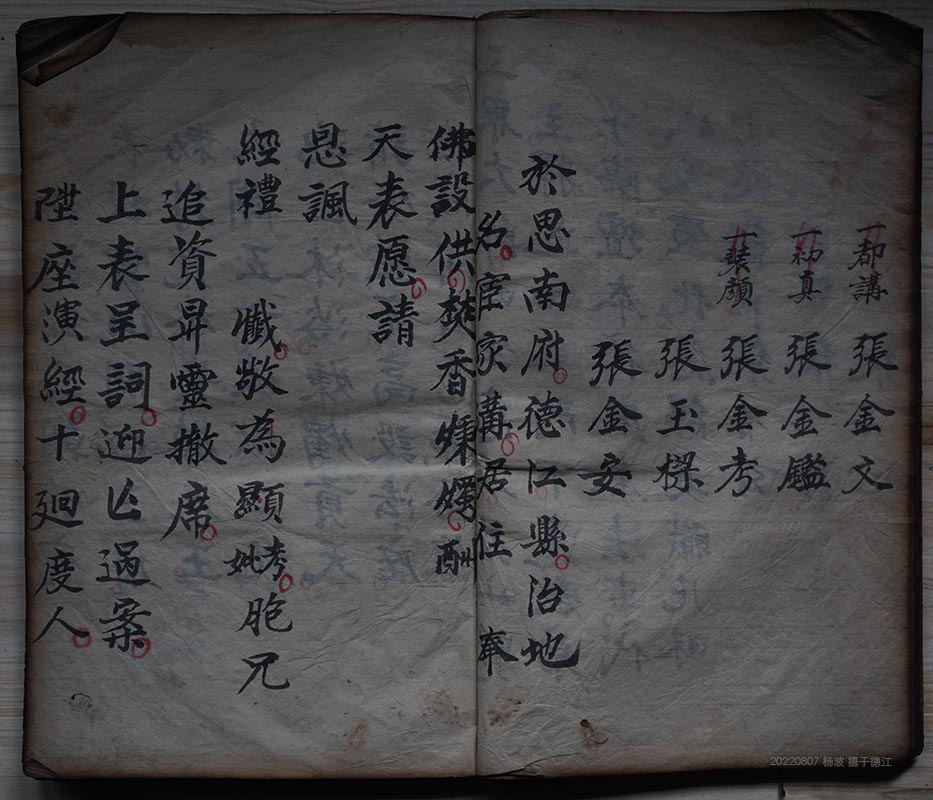 一都講 張金文
一初真 張金鑑
一裝顏 張金考
張玉樑
張金安
於思南府德江縣治地
名 宦家溝居住 奉
佛設供焚香煉燭酬
天表愿請
恩諷
經禮 懺敬為顯考妣胞兄
追資昇靈撤席
上表呈詞迎亡過案
陞座演經十迴度人
20220807 杨波 摄于德江